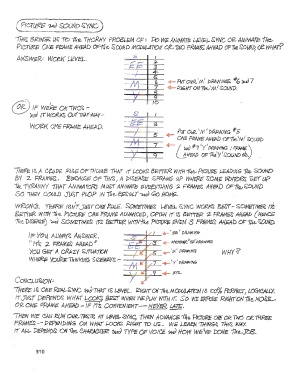 PICTURE and SOUND SYNC
THIS BRINGS US TO THE THORNY PROBLEM OF: DO WE ANIMATE LEVEL SYNC OR ANIMATE THE
PICTURE ONE FRAME AHEAD OF THE SOUND MODULATION OR TWO FRAMES AHEAD OF THE SOUND, OR WHAT?
ANSWER: WORK LEVEL.
EE
I
M
Y
PUT OUR 'M' DRAWINGS #6 and 7
RIGHT ON THE 'M' SOUND.
OR
IF WE'RE ON TWOS –
and IT WORKS OUT THAT WAY –
WORK ONE FRAME AHEAD.
EE
I
M
Y
PUT OUR 'M' DRAWING #5
ONE FRAME AHEAD OF THE 'M' SOUND
(and #7 'Y' DRAWING 1 FRAME
AHEAD OF THE 'Y' SOUND etc.)
THERE IS A CRUDE RULE OF THUMB THAT IT LOOKS BETTER WITH THE PICTURE LEADING THE SOUND
BY 2 FRAMES. BECAUSE OF THIS, A DISEASE SPRANG UP WHERE SOME EDITORS SET UP
THE TYRANNY THAT ANIMATORS MUST ANIMATE EVERYTHING 2 FRAMES AHEAD OF THE SOUND
SO THEY COULD JUST PLOP IN THE RESULT and GO HOME.
WRONG. THERE ISN'T JUST ONE RULE. SOMETIMES LEVEL SYNC WORKS BEST – SOMETIMES IT'S
BETTER WITH THE PICTURE ONE FRAME ADVANCED, OFTEN IT IS BETTER 2 FRAMES AHEAD (HENCE
THE DISEASE) and SOMETIMES IT'S BETTER WITH THE PICTURE EVEN 3 FRAMES AHEAD OF THE SOUND.
IF YOU ALWAYS ANIMATE
"HE 2 FRAMES AHEAD"
YOU GET A CRAZY SITUATION
WHERE YOU'RE TAKING SCENERS –
EE
I
M
Y
'EE' DRAWING
'M' DRAWING
'Y' DRAWING
ETC.
WHY?
CONCLUSION:
THERE IS ONE REAL SYNC and THAT IS LEVEL. RIGHT ON THE MODULATION IS 100% PERFECT, LOGICALLY.
IT JUST DEPENDS WHAT LOOKS BEST WHEN WE PLAY WITH IT. SO WE EXPOSE RIGHT ON THE NOSE –
OR ONE FRAME AHEAD – IF IT'S CONVENIENT – NEVER LATE.
THEN WE CAN RUN OUR TESTS AT LEVEL SYNC, THEN ADVANCE THE PICTURE ONE OR TWO OR THREE
FRAMES – DEPENDING ON WHAT LOOKS RIGHT TO US. WE LEARN THINGS THIS WAY.
IT ALL DEPENDS ON THE CHARACTER and TYPE OF VOICE and HOW WE'VE DONE THE JOB.
310